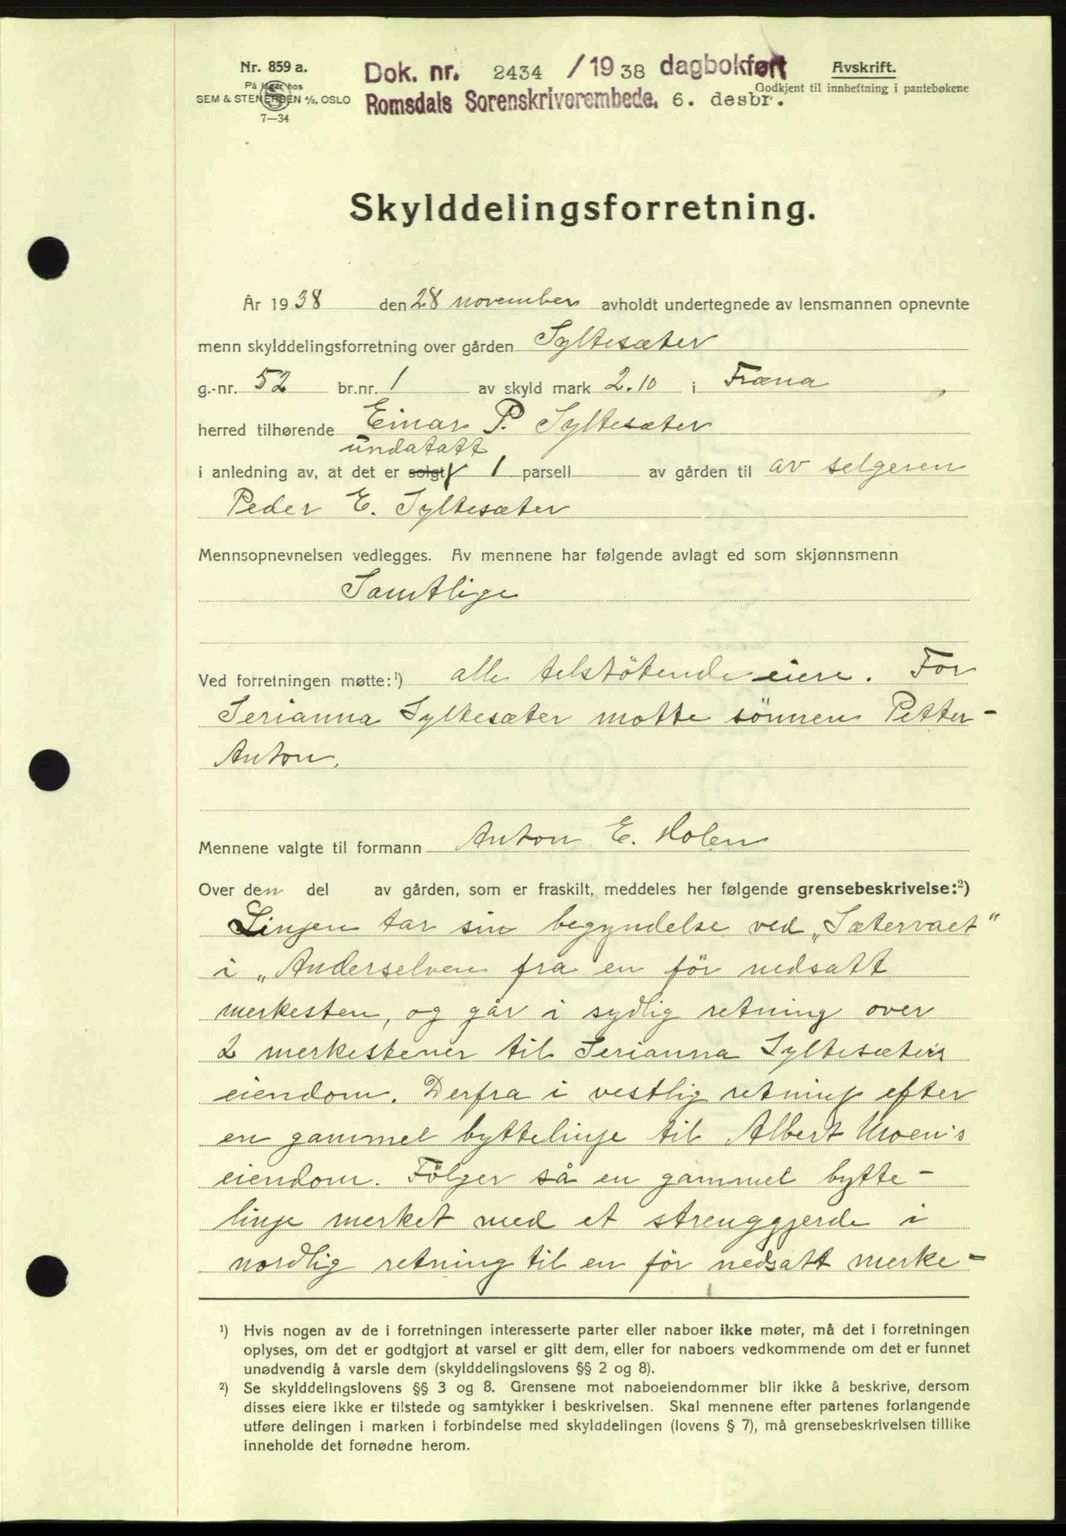 Nr. 859 a.
På lager hos
SEM & STENERSEN A/S, OSLO
7—34
Dok. nr. 2434 /1938 dagbokført
Romsdals Sorenskriverembede. 6. desbr.
Avskrift.
Godkjent til innheftning i pantebøkene
Skylddelingsforretning.
År 1938 den 28 november avholdt undertegnede av lensmannen opnevnte
menn skylddelingsforretning over gården Syltesæter
g.-nr. 52 br.nr. 1 av skyld mark 2.10 i Fræna
herred tilhørende Einar P. Syltesæter
undatatt
i anledning av, at det er solgt 1 parsell av gården til av selgeren
Peder E. Syltesæter
Mennsopnevnelsen vedlegges. Av mennene har følgende avlagt ed som skjønnsmenn
Samtlige
Ved forretningen møtte:¹) alle tilstötende eiere. For
Serianna Syltesæter møtte sönnen Petter-
Anton.
Mennene valgte til formann Anton E. Holen
Over den del av gården, som er fraskilt, meddeles her følgende grensebeskrivelse:²)
Linjen tar sin begyndelse ved „Sætervaet"
i „Anderselven fra en för nedsatt
merkesten, og går i sydlig retning over
2 merkestener til Serianna Syltesæters
eiendom. Derfra i vestlig retning efter
en gammel byttelinje til Albert Moen's
eiendom. Fölger så en gammel bytte-
linje merket med et strenggjerde i
nordlig retning til en för nedsatt merke-
¹) Hvis nogen av de i forretningen interesserte parter eller naboer ikke møter, må det i forretningen
oplyses, om det er godtgjort at varsel er gitt dem, eller for naboers vedkommende om det er funnet
unødvendig å varsle dem (skylddelingslovens §§ 2 og 8).
²) Se skylddelingslovens §§ 3 og 8. Grensene mot naboeiendommer blir ikke å beskrive, dersom
disses eiere ikke er tilstede og samtykker i beskrivelsen. Skal mennene efter partenes forlangende
utføre delingen i marken i forbindelse med skylddelingen (lovens § 7), må grensebeskrivelsen tillike
inneholde det fornødne herom.